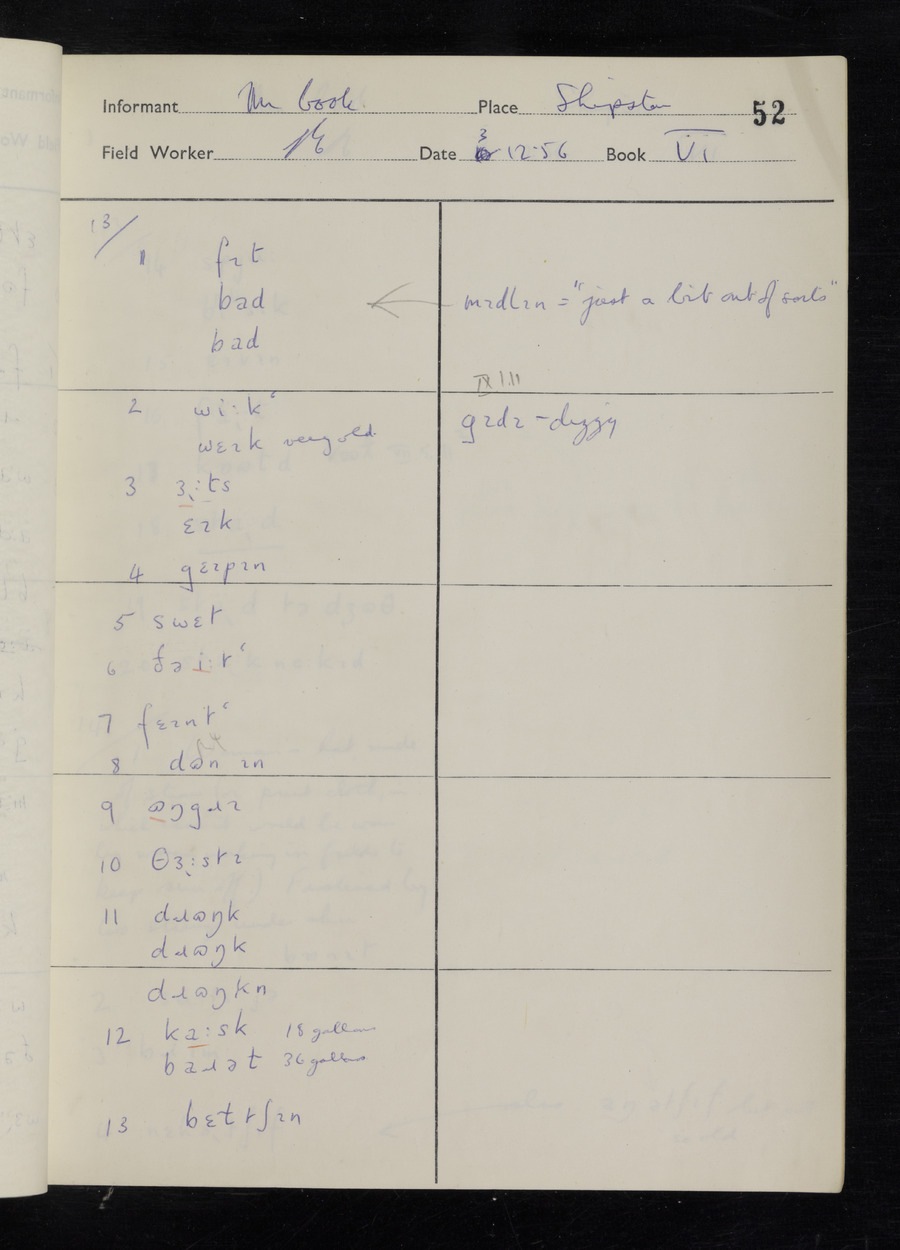 Informant Mr Cook Place Shipston 52
Field Worker Date 3 12.56 Book VI
13/
1 fɪt
bad
bad
mɪdlɪn = "just a bit out of sorts"
IX 1.11
2 wiːkʻ
wɛɪk very old
gɪdɪ - dizzy
3 ɜ˞ːts
ɛɪk
4 gɛɪpɪn
5 swɛt
6
7 fɛɪntʻ
8 ɪn
9 ɷŋgɹɪ
10 θɜ˞ːstɪ
11 dɹɷŋk
dɹɷŋk
dɹɷŋkn
12 kaːsk 18 gallons
baɹət 36 gallons
13 bɛtʃɪn